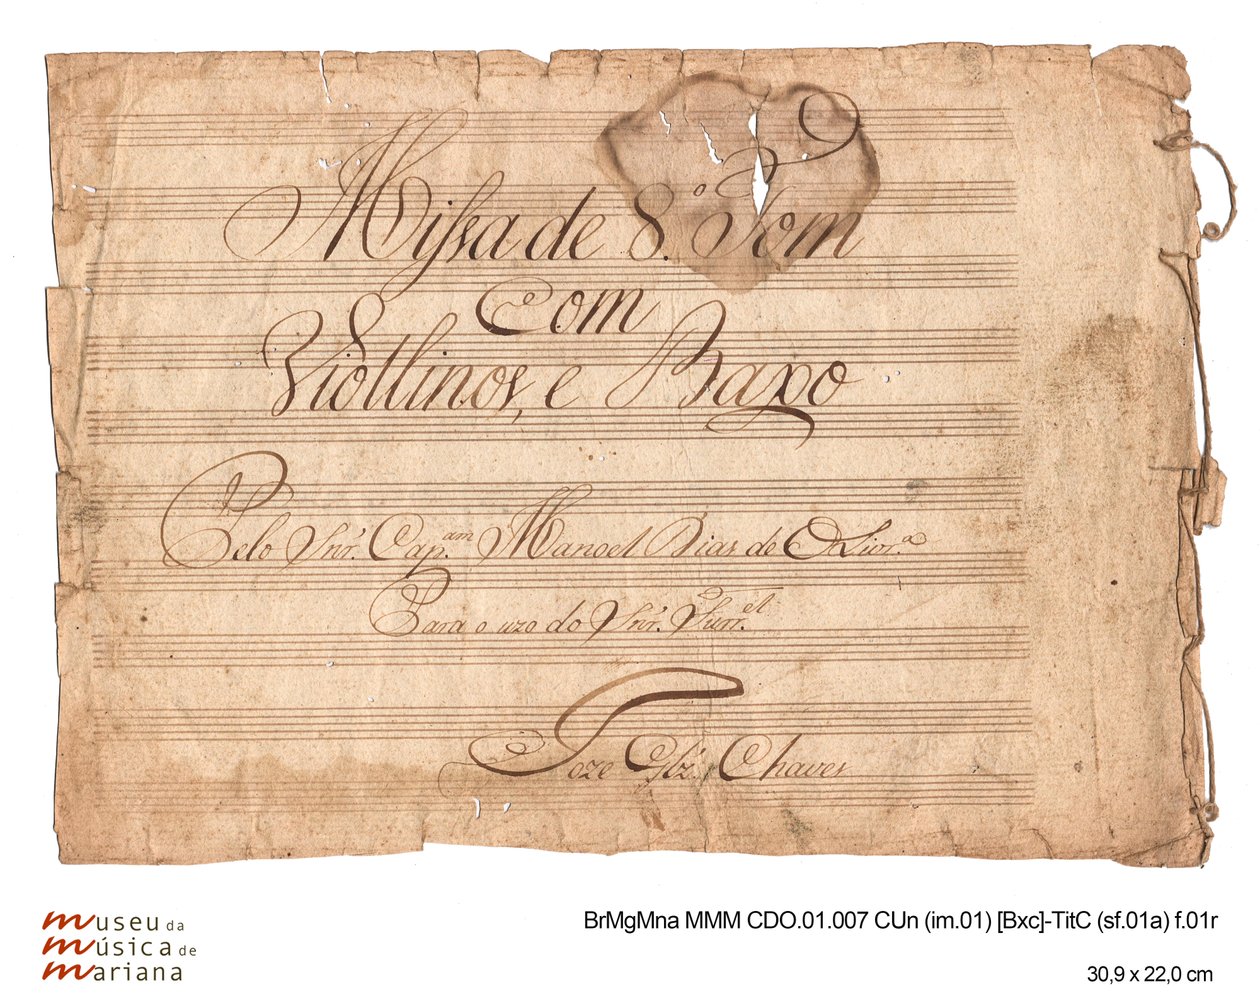 Missa de 8.º Tom
Com
Viollinos, e Baxo
Pelo Snr. Cap.am Manoel Dias de Olivr.a
Para o uzo do Snr. Furr.el
Joze Glz. Chaves
museu da
música de
mariana
BrMgMna MMM CDO.01.007 CUn (im.01) [Bxc]-TitC (sf.01a) f.01r
30,9 x 22,0 cm